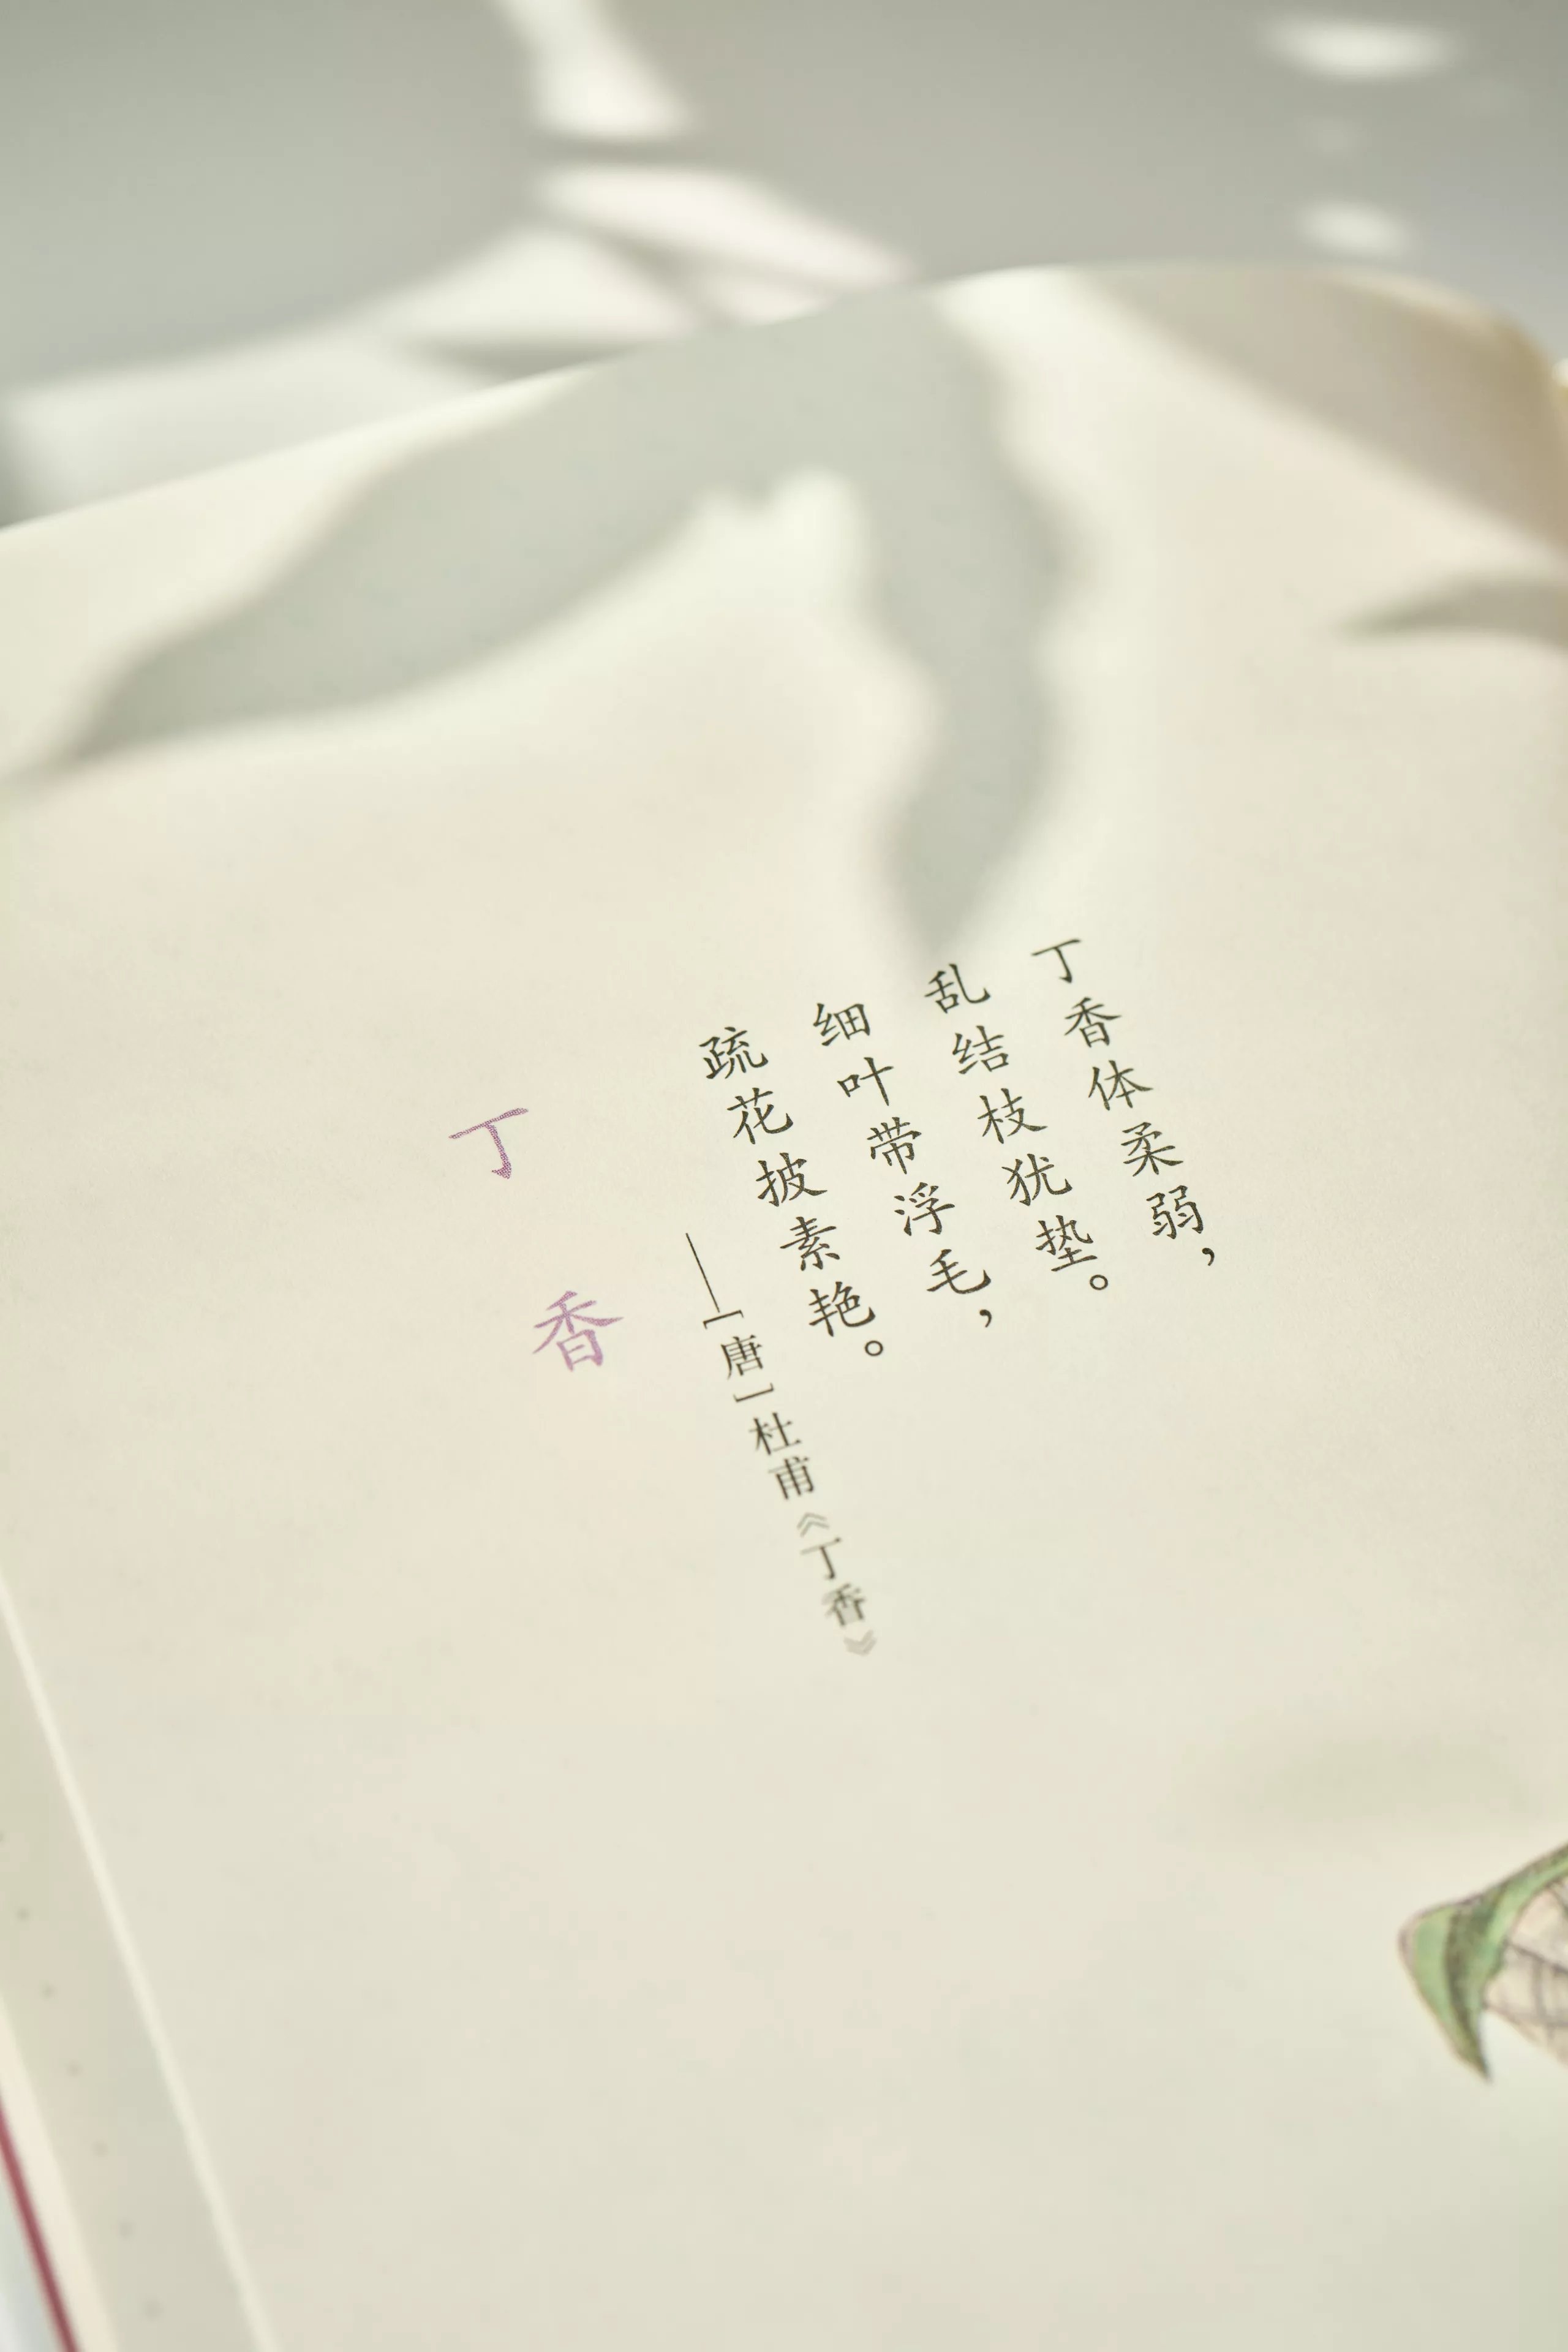 丁香体柔弱，
乱结枝犹垫。
细叶带浮毛，
疏花披素艳。
——[唐]杜甫《丁香》
丁香